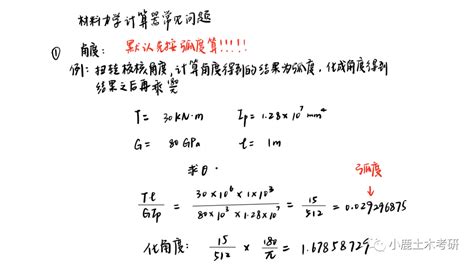 材料力学计算器常见问题
① 角度：默认先按弧度算!!!!!
例：扭转校核角度，计算角度得到的结果为弧度，化成角度得到
结果之后再乘 180/π
T = 30 KN·m Ip = 1.28×10⁷ mm⁴
G = 80 GPa l = 1m
求θ.
弧度
Tl/GIp = 30×10⁶×1×10³/80×10³×1.28×10⁷ = 15/512 = 0.029296875
化角度: 15/512 × 180/π = 1.67858729
小鹿土木考研